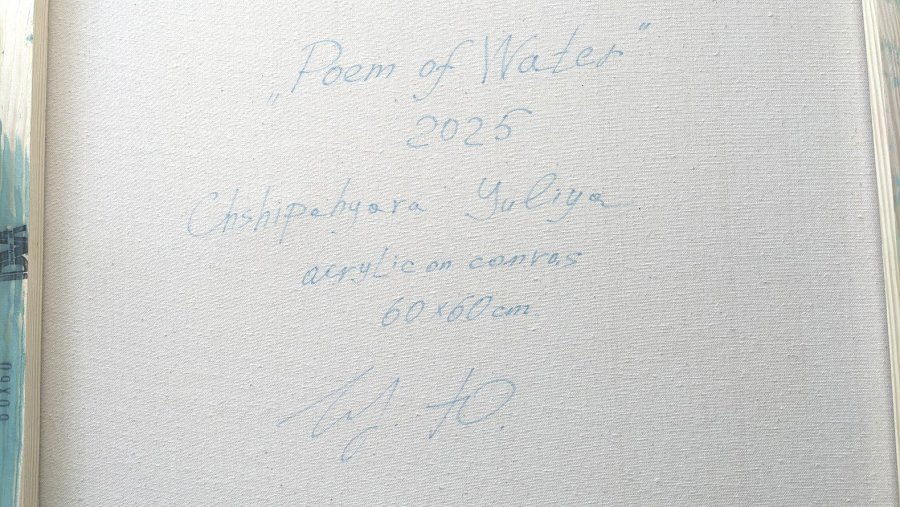 „Poem of Water"
2025
Chshipahyara Yuliya
acrylic on canvas
60×60 cm.
Щ. Ю.
60X60